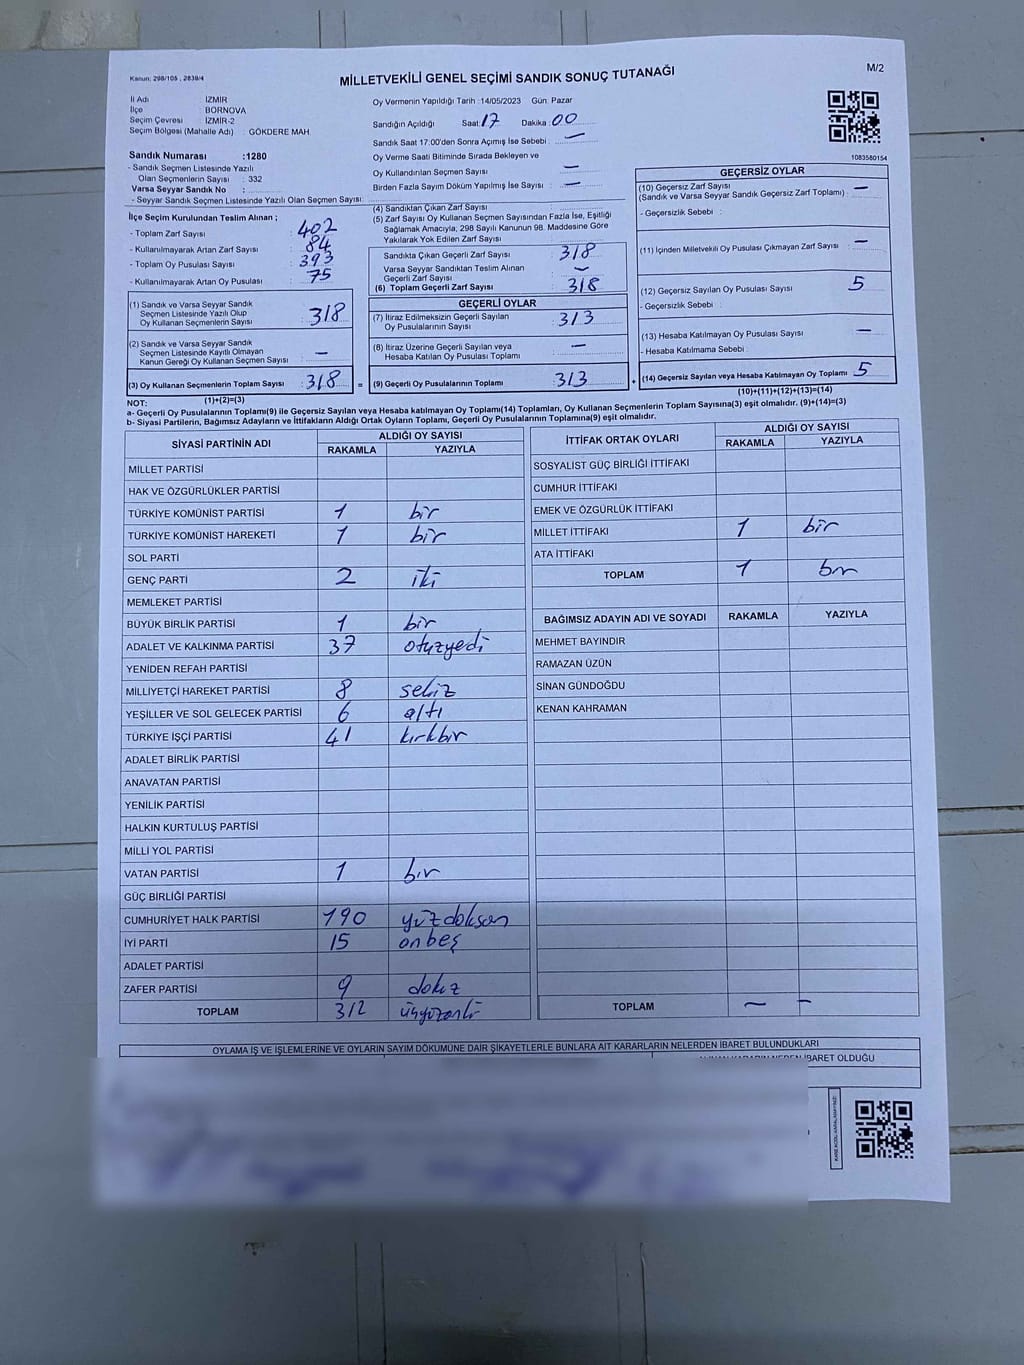 Kanun: 298/105 , 2839/4
MİLLETVEKİLİ GENEL SEÇİMİ SANDIK SONUÇ TUTANAĞI
M/2
İl Adı : İZMİR
İlçe : BORNOVA
Seçim Çevresi : İZMİR-2
Seçim Bölgesi (Mahalle Adı) : GÖKDERE MAH.
Sandık Numarası :1280
- Sandık Seçmen Listesinde Yazılı
Olan Seçmenlerin Sayısı : 332
Varsa Seyyar Sandık No :
- Seyyar Sandık Seçmen Listesinde Yazılı Olan Seçmen Sayısı:
İlçe Seçim Kurulundan Teslim Alınan ;
- Toplam Zarf Sayısı : 402
- Kullanılmayarak Artan Zarf Sayısı : 84
- Toplam Oy Pusulası Sayısı : 393
- Kullanılmayarak Artan Oy Pusulası : 75
(1) Sandık ve Varsa Seyyar Sandık
Seçmen Listesinde Yazılı Olup
Oy Kullanan Seçmenlerin Sayısı : 318
(2) Sandık ve Varsa Seyyar Sandık
Seçmen Listesinde Kayıtlı Olmayan
Kanun Gereği Oy Kullanan Seçmen Sayısı : —
(3) Oy Kullanan Seçmenlerin Toplam Sayısı : 318 =
(1)+(2)=(3)
Oy Vermenin Yapıldığı Tarih :14/05/2023 Gün: Pazar
Sandığın Açıldığı Saat:17 Dakika :00
Sandık Saat 17:00'den Sonra Açımış İse Sebebi : —
Oy Verme Saati Bitiminde Sırada Bekleyen ve
Oy Kullandırılan Seçmen Sayısı : —
Birden Fazla Sayım Döküm Yapılmış İse Sayısı : —
(4) Sandıktan Çıkan Zarf Sayısı :
(5) Zarf Sayısı Oy Kullanan Seçmen Sayısından Fazla İse, Eşitliği
Sağlamak Amacıyla, 298 Sayılı Kanunun 98. Maddesine Göre
Yakılarak Yok Edilen Zarf Sayısı
Sandıkta Çıkan Geçerli Zarf Sayısı : 318
Varsa Seyyar Sandıktan Teslim Alınan
Geçerli Zarf Sayısı : —
(6) Toplam Geçerli Zarf Sayısı : 318
GEÇERLİ OYLAR
(7) İtiraz Edilmeksizin Geçerli Sayılan
Oy Pusulalarının Sayısı : 313
(8) İtiraz Üzerine Geçerli Sayılan veya
Hesaba Katılan Oy Pusulası Toplamı : —
(9) Geçerli Oy Pusulalarının Toplamı : 313 +
1083580154
GEÇERSİZ OYLAR
(10) Geçersiz Zarf Sayısı
(Sandık ve Varsa Seyyar Sandık Geçersiz Zarf Toplamı) : —
- Geçersizlik Sebebi :
(11) İçinden Milletvekili Oy Pusulası Çıkmayan Zarf Sayısı : —
(12) Geçersiz Sayılan Oy Pusulası Sayısı : 5
- Geçersizlik Sebebi :
(13) Hesaba Katılmayan Oy Pusulası Sayısı : —
- Hesaba Katılmama Sebebi :
(14) Geçersiz Sayılan veya Hesaba Katılmayan Oy Toplamı : 5
(10)+(11)+(12)+(13)=(14)
NOT:
a- Geçerli Oy Pusulalarının Toplamı(9) ile Geçersiz Sayılan veya Hesaba katılmayan Oy Toplamı(14) Toplamları, Oy Kullanan Seçmenlerin Toplam Sayısına(3) eşit olmalıdır. (9)+(14)=(3)
b- Siyasi Partilerin, Bağımsız Adayların ve İttifakların Aldığı Ortak Oyların Toplamı, Geçerli Oy Pusulalarının Toplamına(9) eşit olmalıdır.
SİYASİ PARTİNİN ADI ALDIĞI OY SAYISI
RAKAMLA YAZIYLA
MİLLET PARTİSİ
HAK VE ÖZGÜRLÜKLER PARTİSİ
TÜRKİYE KOMÜNİST PARTİSİ 1 bir
TÜRKİYE KOMÜNİST HAREKETİ 1 bir
SOL PARTİ
GENÇ PARTİ 2 iki
MEMLEKET PARTİSİ
BÜYÜK BİRLİK PARTİSİ 1 bir
ADALET VE KALKINMA PARTİSİ 37 otuzyedi
YENİDEN REFAH PARTİSİ
MİLLİYETÇİ HAREKET PARTİSİ 8 sekiz
YEŞİLLER VE SOL GELECEK PARTİSİ 6 altı
TÜRKİYE İŞÇİ PARTİSİ 41 kırkbir
ADALET BİRLİK PARTİSİ
ANAVATAN PARTİSİ
YENİLİK PARTİSİ
HALKIN KURTULUŞ PARTİSİ
MİLLİ YOL PARTİSİ
VATAN PARTİSİ 1 bir
GÜÇ BİRLİĞİ PARTİSİ
CUMHURİYET HALK PARTİSİ 190 yüzdoksan
İYİ PARTİ 15 onbeş
ADALET PARTİSİ
ZAFER PARTİSİ 9 dokuz
TOPLAM 312
İTTİFAK ORTAK OYLARI ALDIĞI OY SAYISI
RAKAMLA YAZIYLA
SOSYALİST GÜÇ BİRLİĞİ İTTİFAKI
CUMHUR İTTİFAKI
EMEK VE ÖZGÜRLÜK İTTİFAKI
MİLLET İTTİFAKI 1 bir
ATA İTTİFAKI
TOPLAM 1 bir
BAĞIMSIZ ADAYIN ADI VE SOYADI RAKAMLA YAZIYLA
MEHMET BAYINDIR
RAMAZAN ÜZÜN
SİNAN GÜNDOĞDU
KENAN KAHRAMAN
TOPLAM — —
OYLAMA İŞ VE İŞLEMLERİNE VE OYLARIN SAYIM DÖKÜMÜNE DAİR ŞİKAYETLERLE BUNLARA AİT KARARLARIN NELERDEN İBARET BULUNDUKLARI
İBARET OLDUĞU